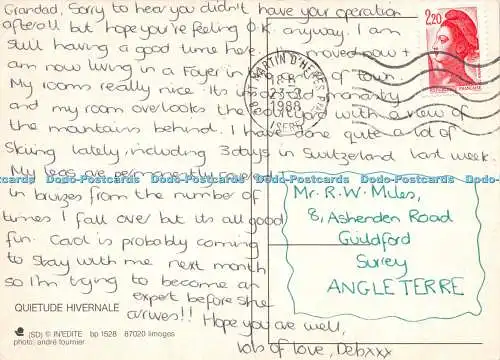 Grandad, Sorry to hear you didn't have your operation
afterall but hope you're feeling O.K. anyway. I am
still having a good time here. moved now +
am now living in a Foyer in of town.
My rooms really nice. It's in
and my room overlooks the with a view of
the mountains behind. I have done quite a lot of
skiing lately including 3 days in Switzerland last week.
My legs are permanently covered
in bruizes from the number of
times I fall over but its all good
fun. Carol is probably coming
to stay with me next month
so I'm trying to become an
expert before she
arrives!! Hope you are well,
lots of love, Debxxx
Mr. R. W. Mules,
8, Ashenden Road
Guildford
Surrey
ANGLETERRE
2,20
ST MARTIN D'HERES PPAL
23-2
1988
ISERE
QUIETUDE HIVERNALE
(SD) © IN'EDITE bp 1528 87020 limoges
photo: andré fournier
Dodo-Postcards Dodo-Postcards Dodo-Postcards Dodo-Postcards Dodo-Postcards Dodo-Postcards